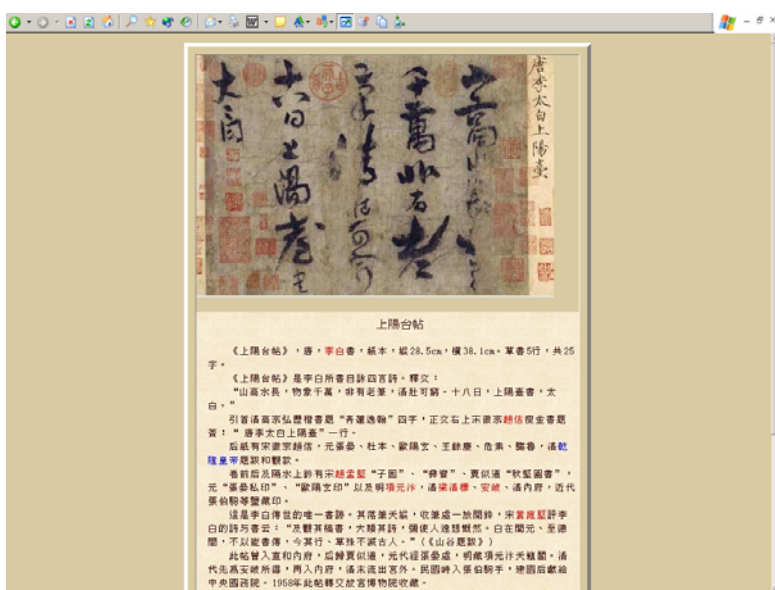 唐李太白上陽臺
山高水長物象
千萬非有老筆
清壯可窮
十八日上陽臺書
太白
上陽台帖
《上陽台帖》，唐，李白書，紙本，縱28.5cm，橫38.1cm。草書5行，共25
字。
《上陽台帖》是李白所書自詠四言詩。釋文：
“山高水長，物象千萬，非有老筆，清壯可窮。十八日，上陽臺書，太
白。”
引首清高宗弘歷楷書題“青蓮逸翰”四字，正文右上宋徽宗趙佶瘦金書題
簽：“ 唐李太白上陽臺”一行。
后紙有宋徽宗趙佶，元張晏、杜本、歐陽玄、王餘慶、危素、騶魯，清乾
隆皇帝題跋和觀款。
卷前后及隔水上鈐有宋趙孟堅“子固”、“彝齋”、賈似道“秋壑圖書”，
元“張晏私印”、“歐陽玄印”以及明項元汴，清梁清標、安岐、清內府，近代
張伯駒等鑒藏印。
這是李白傳世的唯一書跡。其落筆天縱，收筆處一放開鋒，宋黃庭堅評李
白的詩与書云：“及觀其稿書，大類其詩，彌使人遠想慨然。白在開元、至德
間，不以能書傳，今其行、草殊不減古人。”（《山谷題跋》）
此帖曾入宣和內府，后歸賈似道，元代經張晏處，明藏項元汴天籟閣。清
代先爲安岐所得，再入內府，清末流出宮外。民國時入張伯駒手，建國后獻給
中央國務院。1958年此帖轉交故宮博物院收藏。